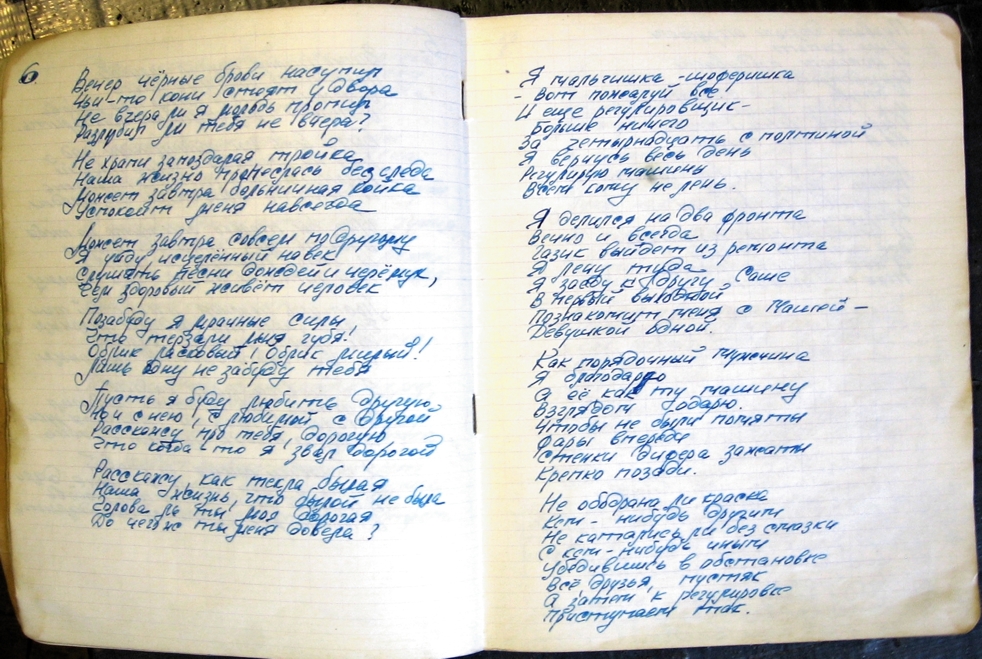 6.
Вечер чёрные брови насупил
Чьи-то кони стоят у двора
Не вчера ли я молодь пропил
Разлубил ли тебя не вчера?
Не храпи запоздалая тройка
Наша жизнь пронеслась без следа
Может завтра больничная койка
Успокоит меня навсегда
Может завтра совсем по другому
Я уйду исцелённый навек
Слушать песни дождей и черёмух,
Чем здоровый живёт человек
Позабуду я мрачные силы
Что терзали меня, губя!
Облик ласковый! Облик милый!
Лишь одну не забуду тебя
Пусть я буду любить другую
Но и с нею, с любимой с другой
Расскажу про тебя, дорогую
Что когда-то я звал дорогой
Расскажу, как текла былая
Наша жизнь, что былой не была
Голова ль ты моя дорогая
До чего ж ты меня довела?
Я мальчишка-шоферишка
- Вот пожалуй всё
И еще регулировщик -
Больше ничего
За четырнадцать с полтиной
Я вернусь весь день
Регулирую машины
Всем кому не лень.
Я делился на два фронта
Вечно и всегда
Газик выйдет из ремонта
Я лечу туда
Я заеду к другу Саше
В первый выходной
Познакомит меня с Машей -
Девушкой одной.
Как порядочный мужчина
Я благодарю
А её как ту машину
Взглядом одарю.
Чтобы не были помяты
Фары впереде
Стенки дифера зажаты
Крепко позади.
Не ободрана ли краска
Кем-нибудь другим
Не каталась ли без смазки
С кем-нибудь иным
Убедившись в обстановке
Всё друзья, пустяк
А затем к регулировке
Приступаем так.